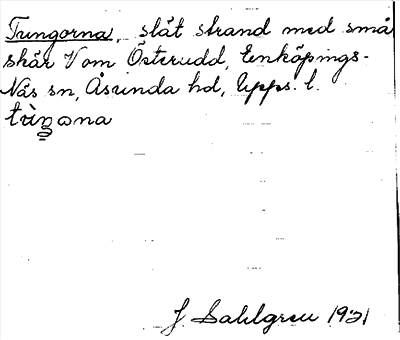 Tungorna, slät strand med små
skär V om Österudd, Enköpings-
Näs sn, Åsunda hd, Upps. l.
tùŋωna
J Sahlgren 1931